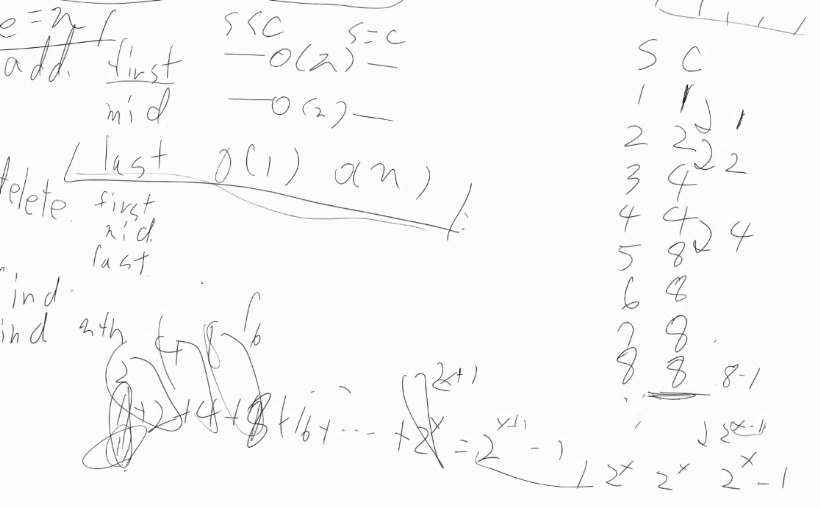 e = n
S≤C S=C
add. first —O(n)—
mid —O(n)—
last O(1) O(n)
delete. first
mid
last
find.
find nth
4 8 16
2
1+2+4+8+16+... + 2^x = 2^(x+1) - 1
2^(x+1)
S C
1 1
1
2 2
2
3 4
4 4
4
5 8
6 8
7 8
8 8 8-1
2^(x-1)
2^x 2^x 2^x - 1